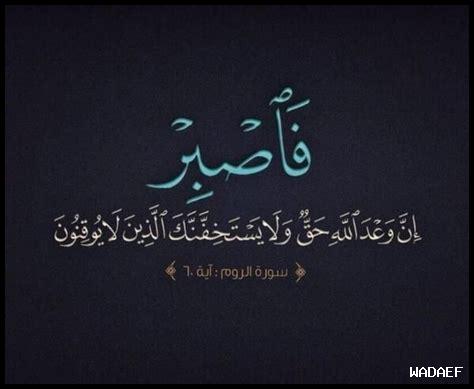 فَٱصْبِرْ
إِنَّ وَعْدَ ٱللَّهِ حَقٌّ وَلَا يَسْتَخِفَّنَّكَ ٱلَّذِينَ لَا يُوقِنُونَ
﴿ سورة الروم : آية ٦٠ ﴾
WADAEF